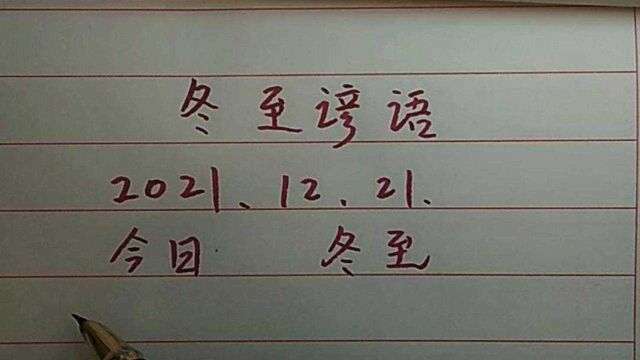 冬至谚语
2021、12、21.
今日 冬至